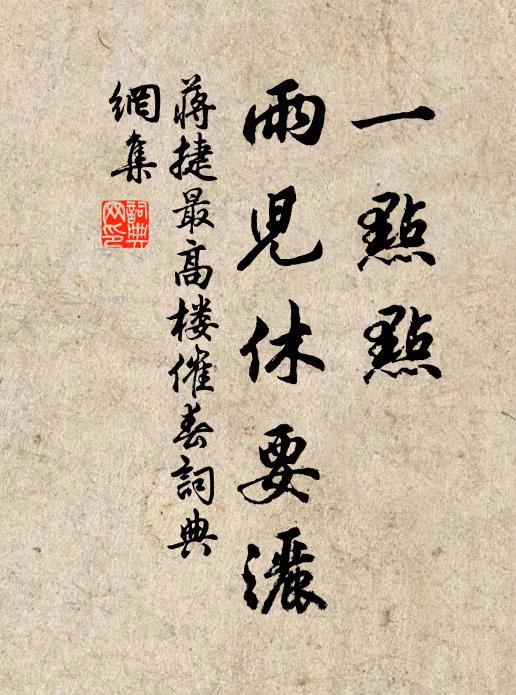 一點點
雨兒休要灑
蔣捷最高樓催春詞典
網集
詞典
网印